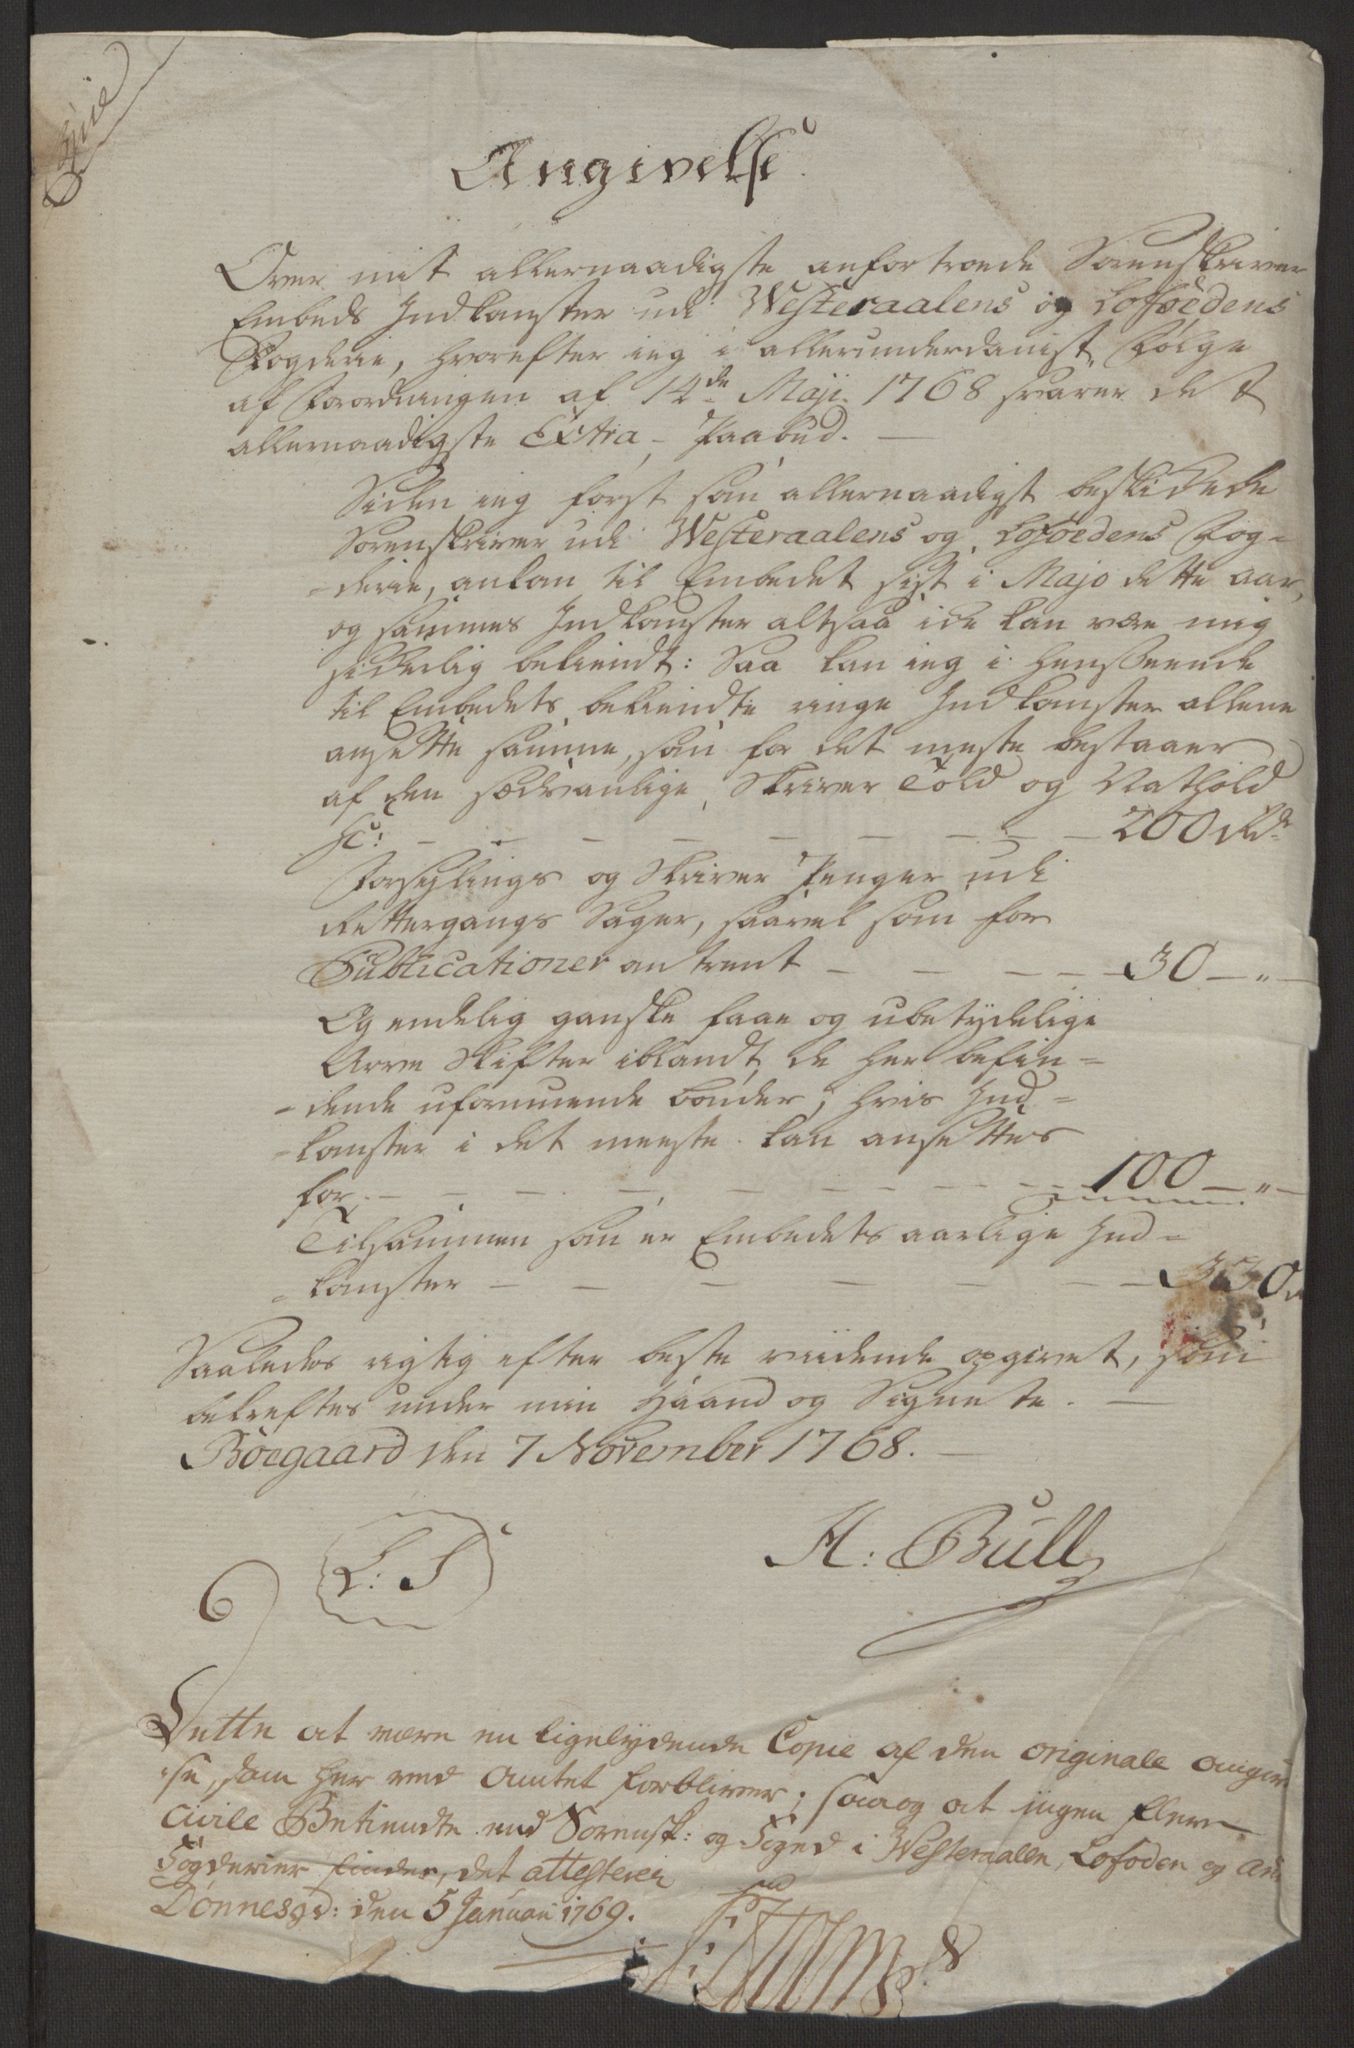 Copie
Angivelse
Over mit allernaadigste anfortroede Sorenskriver
Embeds Indkomster udi Westeraalens og Lofoedens
Fogderie, hvorefter ieg i allerunderdanigst Følge
af Forordningen af 14de Maji 1768 svarer det
allernaadigste Extra Paabud. —
Siden ieg først som allernaadigst beskikkede
Sorenskriver udi Westeraalens og Lofoedens Fog-
-derie, ankom til Embedet sist i Majo dette aar,
og sammes Indkomster altsaa icke kan være mig
tilbekiendt: Saa kan ieg i henseende
til Embedets bekiendte ringe Indkomster allene
ansette samme, som for det meste bestaaer
af den sædvanlige Skriver Told og Nathold
&c: — — — — — — — — 200 Rd.
Forseglings og Skriver Penger udi
Rettergangs Sager, saavel som for
Publicationer omtrent — — — — — 30 — „ —
Og endelig ganske faae og ubetydelige
Arve Skifter iblandt de her befin-
-dende uformuende bønder, hvis Ind-
-komster i det meeste kan ansettes
for — — — — — — — — 100 — „ —
Tilsammen som er Embedets aarlige Ind-
-komster — — — — — — — 330
Saaledes rigtig efter beste vidende opgivet, som
bekreftes under min Haand og Signete. —
Böegaard den 7 November 1768. —
L: S
H: Bull
Dette at være en ligelydende Copie af den originale angivel
-se, som her ved Amtet forbliver; saa og at ingen flere
Civile Betiendte end Sorensk: og Foged i Westeraalen, Lofoden og
Fogderier findes, det attesterer
Dönnesgd: den 5 Januari 1769.